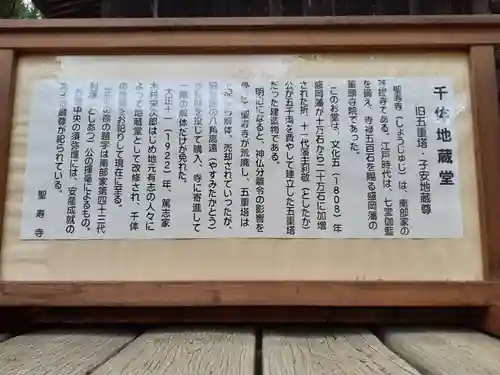 千体地蔵堂
旧五重塔・子安地蔵尊
聖寿寺(しょうじゅじ)は、南部家の
菩提寺である。江戸時代は、七堂伽藍
を備え、寺禄五百石を賜る盛岡藩の
筆頭寺院であった。
このお堂は、文化五(1808)年
盛岡藩が十万石から二十万石に加増
された折、十一代藩主利敬(としたか)
公が五千両を費やして建立した五重塔
だった建造物である。
明治になると、神仏分離令の影響を
聖寿寺が荒廃し、五重塔は
解体、売却されていったが、
の八角高遠(やすみたかとう)
財を投じて購入、寺に寄進して
層の解体だけが免れた。
大正十一(1922)年、篤志家
木村栄次郎はじめ地元有志の人々に
よって地蔵堂として改修され、千体
の地蔵をお祀りして現在に至る。
の額の題字は南部家第四十三代
(としあつ)公の揮毫によるもの。
中央の須弥壇には、安産成就の
地蔵尊が祀られている。
聖寿寺